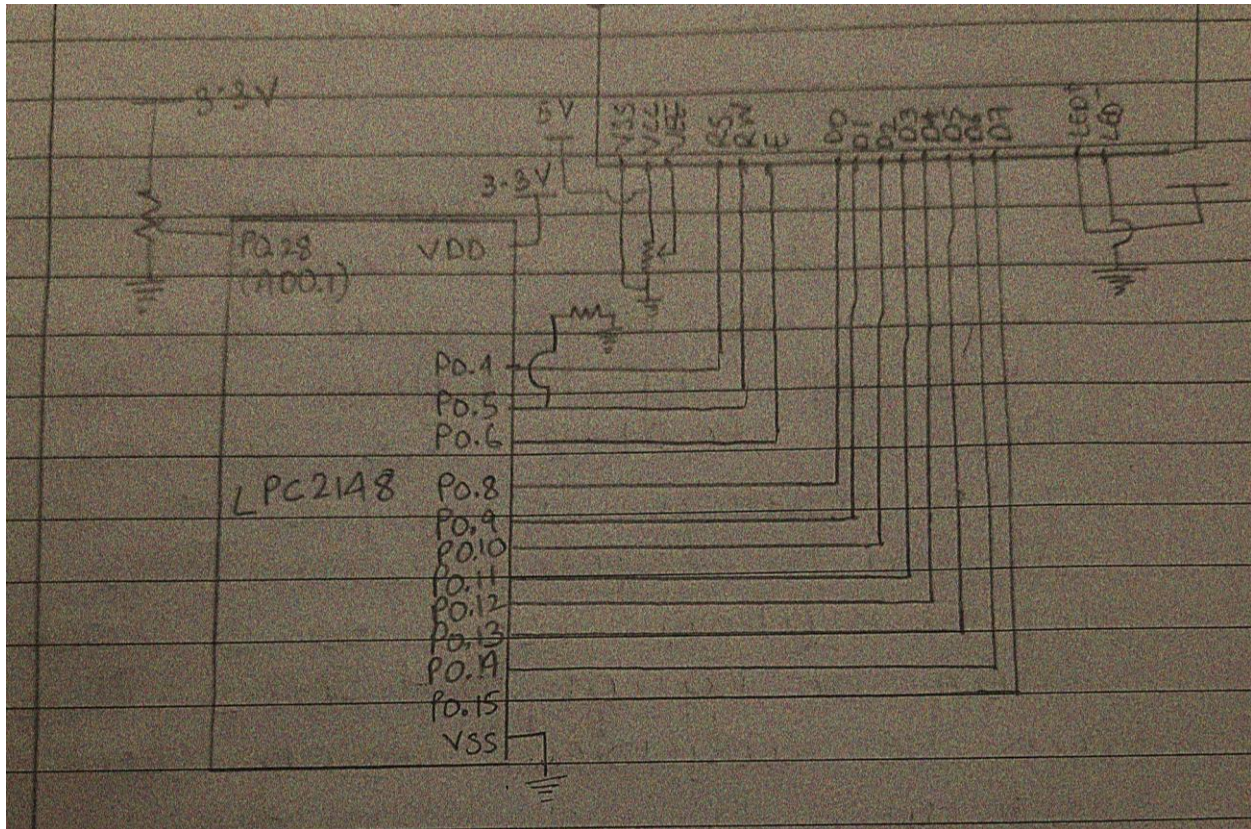 3.3V
5V
VSS
VCC
VEE
RS
RW
E
D0
D1
D2
D3
D4
D5
D6
D7
LED+
LED-
3.3V
P0.28
(AD0.1)
VDD
P0.4
P0.5
P0.6
LPC2148
P0.8
P0.9
P0.10
P0.11
P0.12
P0.13
P0.14
P0.15
VSS